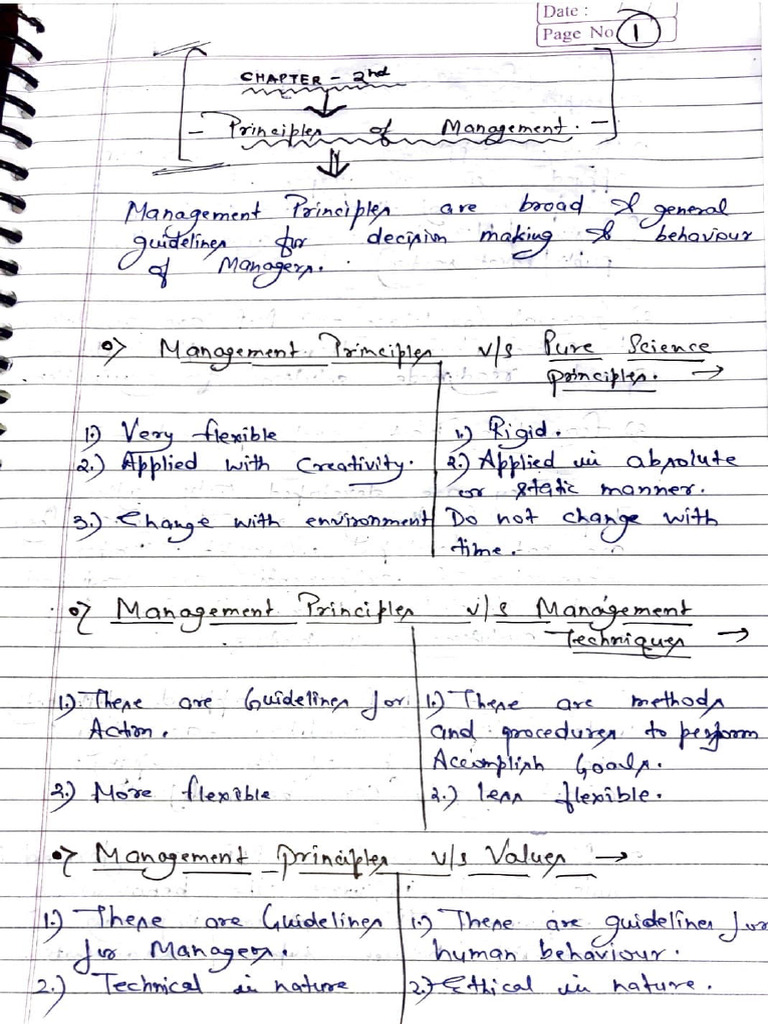 Date :
Page No 1
CHAPTER - 2nd
- Principles of Management. -
Management Principles are broad & general
guidelines for decision making & behaviour
of Managers.
Management Principles v/s Pure Science
principles. →
1.) Very flexible
1.) Rigid.
2.) Applied with Creativity.
2.) Applied in absolute
or static manner.
3.) Change with environment
Do not change with
time.
Management Principles v/s Management
Techniques →
1.) These are Guidelines for
Action.
1.) These are methods
and procedures to perform
Accomplish Goals.
2.) More flexible
2.) less flexible.
Management principles v/s Values →
1.) These are Guidelines
for Managers.
1.) These are guidelines for
human behaviour.
2.) Technical in nature
2.) Ethical in nature.